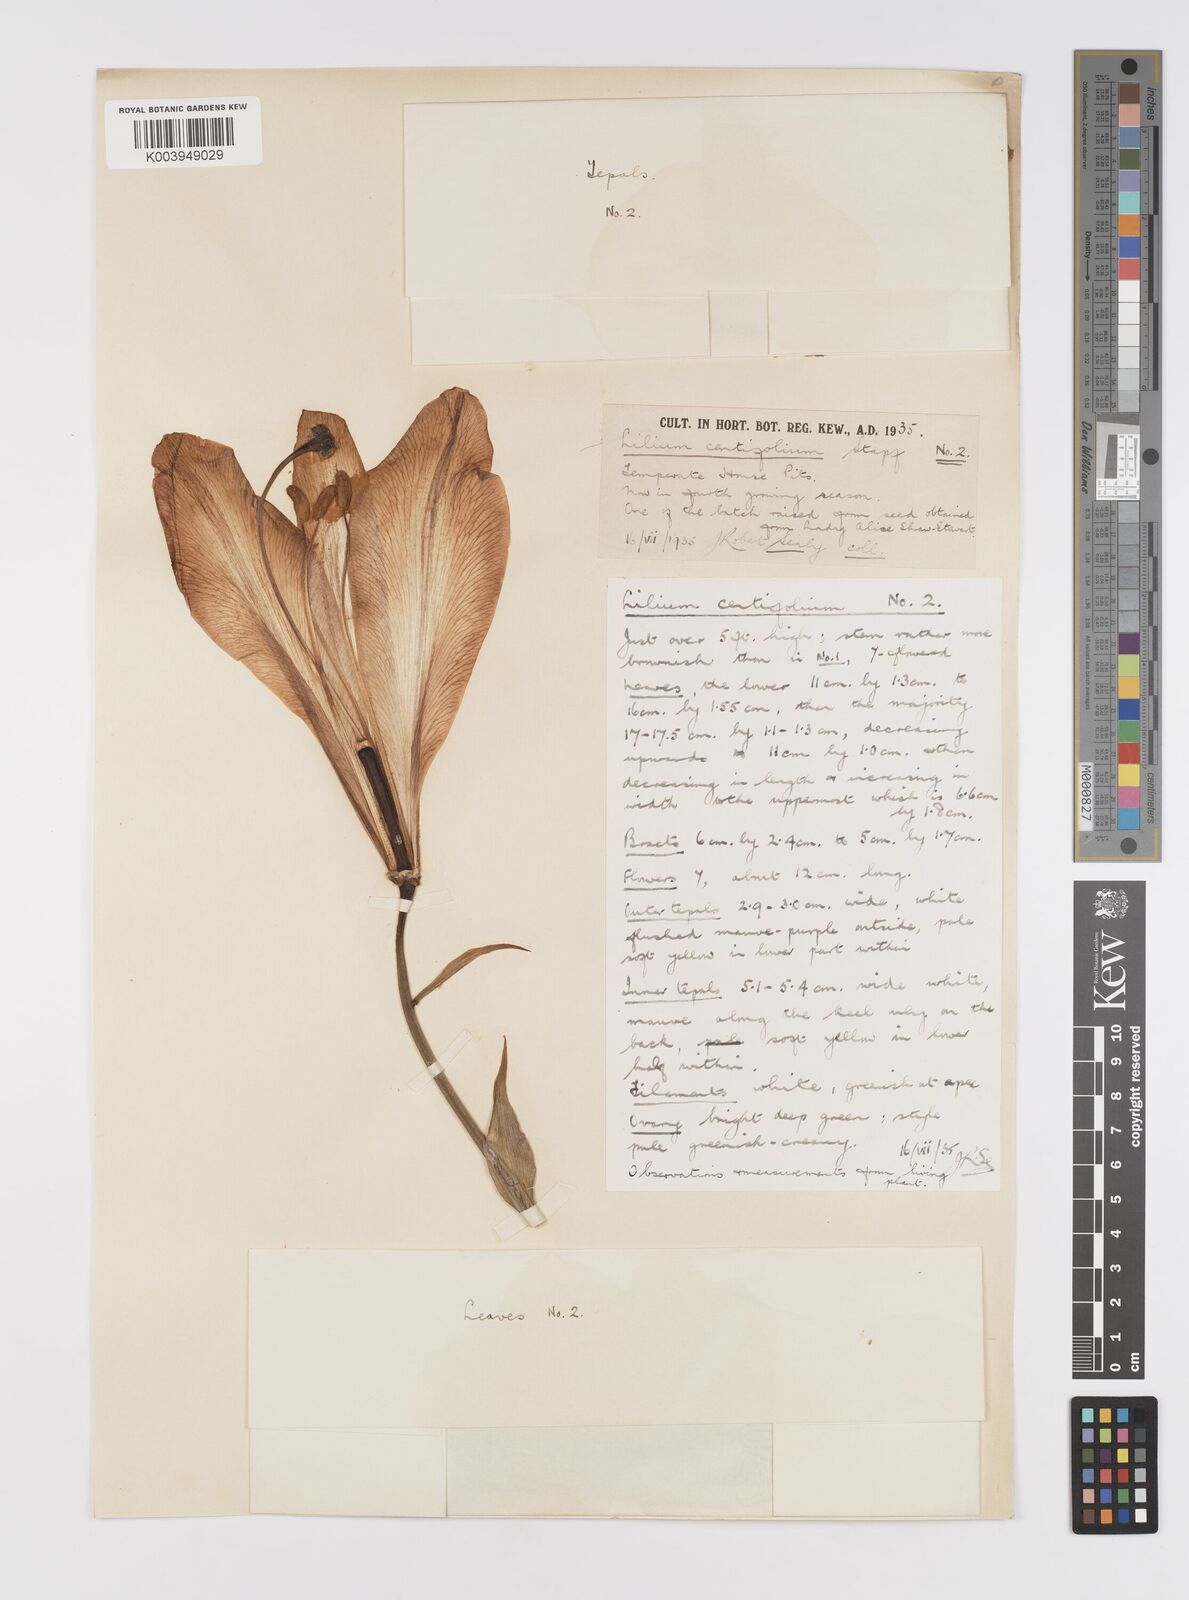 ROYAL BOTANIC GARDENS KEW
K003949029
Tepals.
No. 2.
CULT. IN HORT. BOT. REG. KEW., A.D. 1935.
Lilium centifolium Stapf No. 2.
Temperate House Pits.
Now in fourth growing season.
One of the batch raised from seed obtained
from Lady Alice Shaw-Stewart.
16/vii/1935 J Robert Sealy coll.
Lilium centifolium No. 2.
Just over 5 ft. high; stem rather more
brownish than in No.1, 7-flowered
Leaves, the lower 11 cm. by 1.3 cm. to
16 cm. by 1.55 cm, then the majority
17-17.5 cm. by 1.1-1.3 cm, decreasing
upwards to 11 cm by 1.0 cm. then
decreasing in length & increasing in
width to the uppermost which is 6.6 cm
by 1.8 cm.
Bracts 6 cm. by 2.4 cm. to 5 cm. by 1.7 cm.
Flowers 7, about 12 cm. long.
Outer tepals 2.9-3.0 cm. wide, white
flushed mauve-purple outside, pale
soft yellow in lower part within
Inner tepals 5.1-5.4 cm. wide white,
mauve along the keel only on the
back, pale soft yellow in lower
half within.
Filaments white, greenish at apex
Ovary bright deep green; style
pale greenish-creamy.
16/vii/35 JR.Se
Observations & measurements from living
plant.
Leaves No. 2.
inches
centimeters
Density
Don Williams
M000827
Royal Botanic Gardens
Kew
copyright reserved
0 1 2 3 4 5 6 7 8 9 10
cm